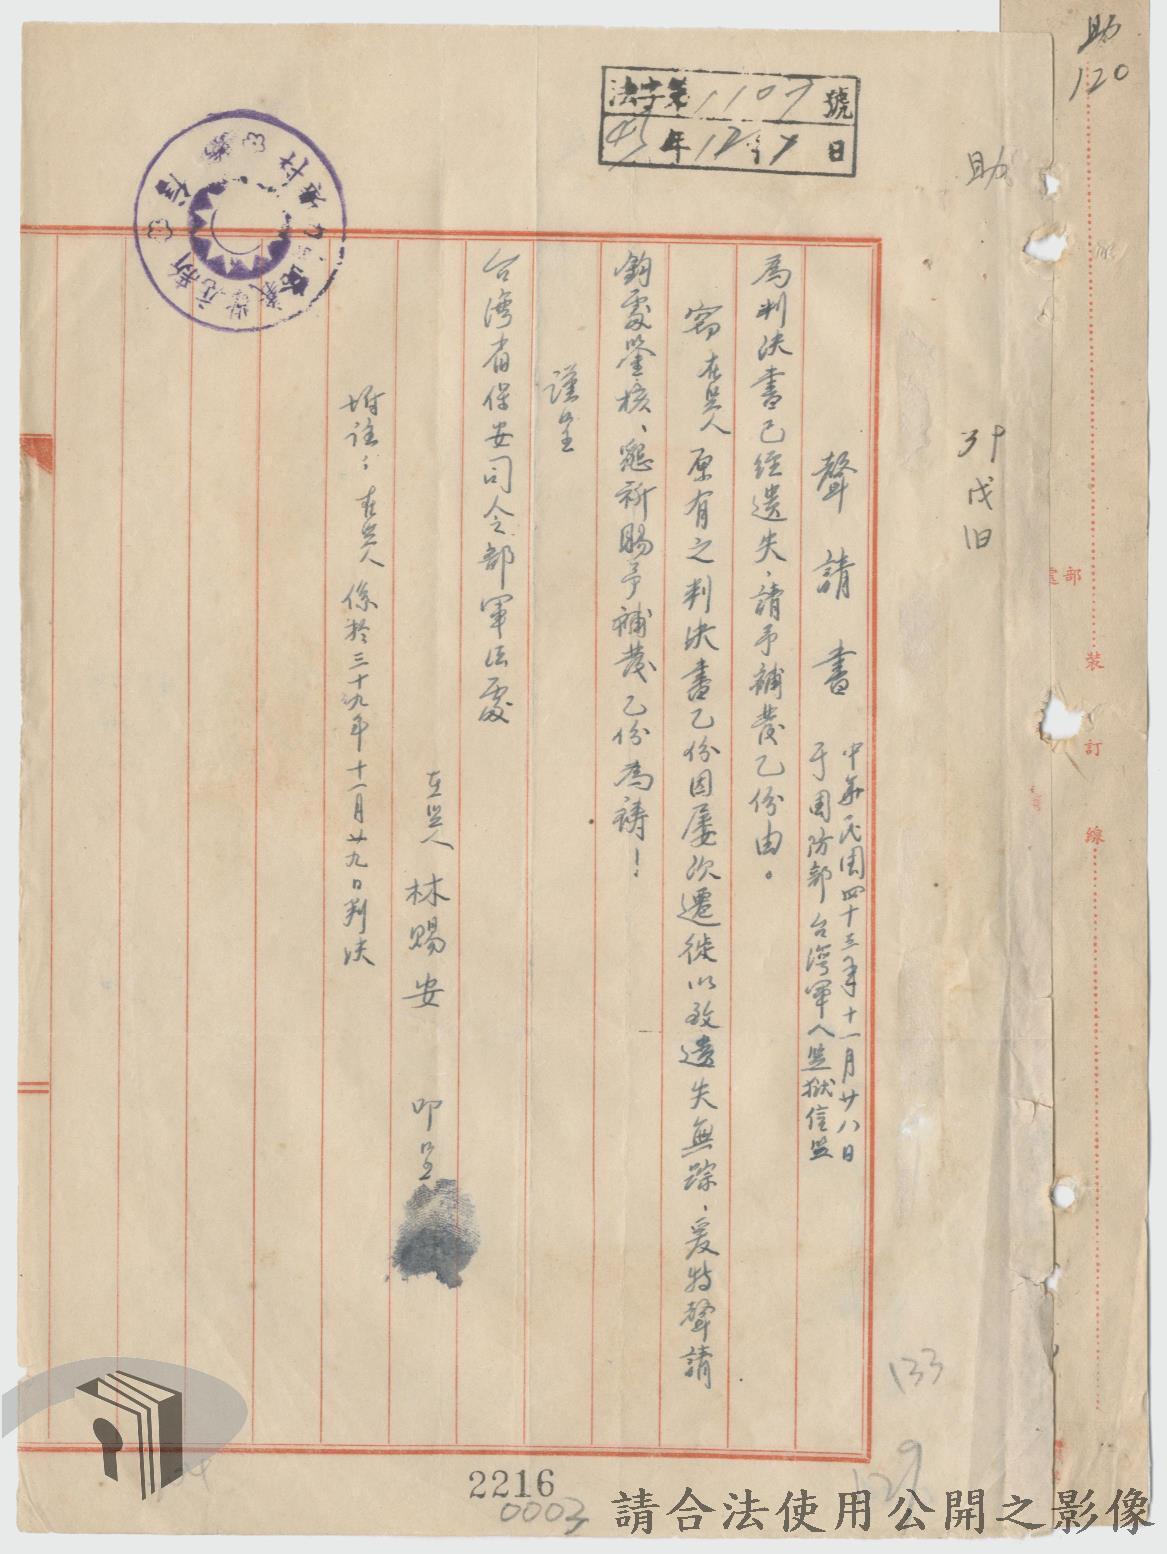 助
120
助
法字第1107號
43年12月7日
39
戊
旧
聲請書
中華民國四十三年十一月廿八日
于國防部台灣軍人監獄信監
為判決書已經遺失、請予補發乙份由。
竊在監人原有之判決書乙份因屢次遷徙以致遺失無踪、爰特聲請
鈞處鑒核、懇祈賜予補發乙份為禱！
謹呈
台灣省保安司令部軍法處
在監人 林賜安 叩呈
附註：在監人係於三十九年十一月廿九日判決
部
裝
訂
線
133
129
2216
0003
請合法使用公開之影像